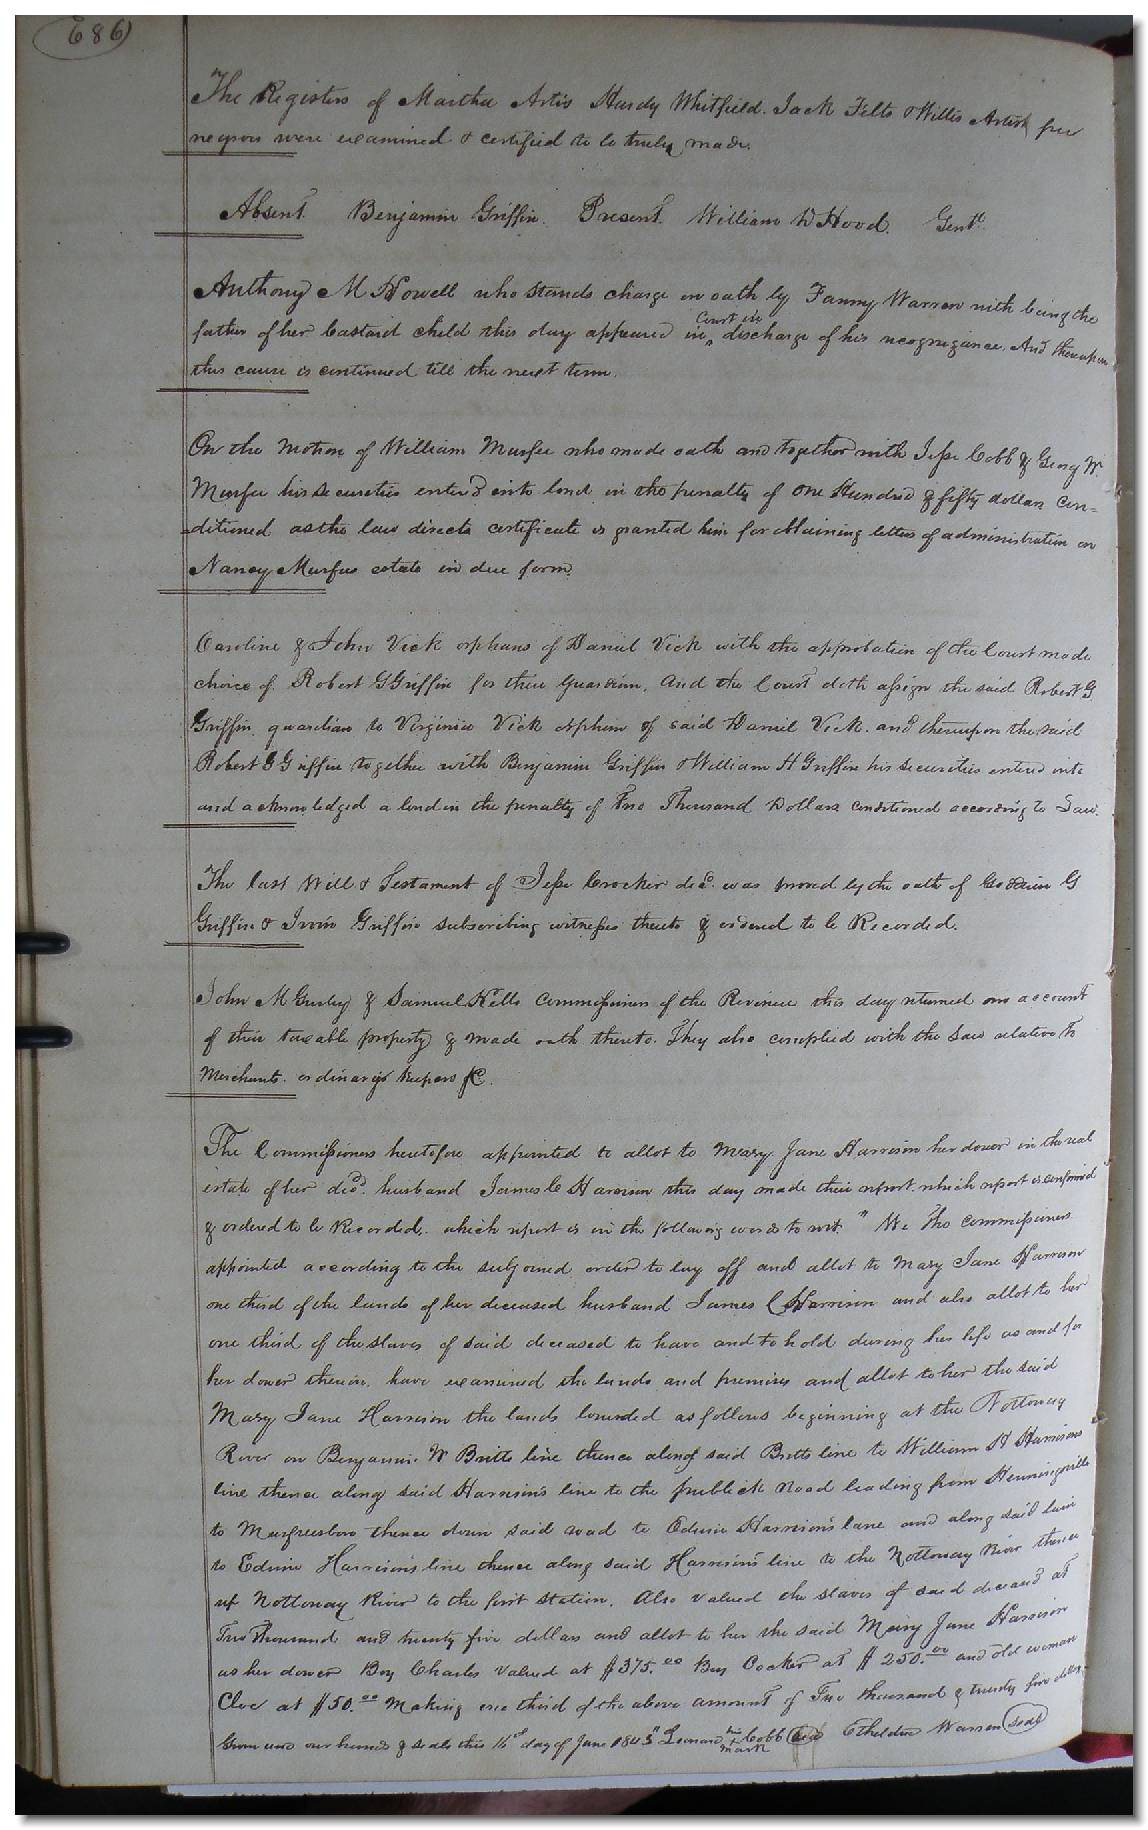 686
The Registers of Martha Artis Hardy Whitfield. Jack Felts & Willis Artist free
negroes were examined & certified to be truly made.
Absent. Benjamin Griffin. Present. William D Hood. Gentn
Anthony M Howell who stands charge on oath by Fanny Warren with being the
father of her bastard child this day appeared in Court in discharge of his recognizance. And thereupon
this cause is continued till the next term.
On the Motion of William Murfee who made oath and together with Jesse Cobb & Georg W.
Murfee his securities enterd into bond in the penalty of One Hundred & fifty dollars con=
ditioned as the law directs certificate is granted him for obtaining letters of administration on
Nancy Murfees estate in due form.
Caroline & John Vick orphans of Daniel Vick with the approbation of the Court made
choice of Robert G Griffin for their Guardian. And the Court doth assign the said Robert G
Griffin guardian to Virginia Vick orphan of said Daniel Vick. and thereupon the said
Robert G Griffin together with Benjamin Griffin & William H Griffin his securities entered into
and acknowledged a bond in the penalty of Two Thousand Dollars conditioned according to Law.
The last Will & Testament of Jesse Crocker decd. was proved by the oath of G
Griffin & Irvin Griffin subscribing witnesses thereto & ordered to be Recorded.
John M Gurley & Samuel Kello Commissioners of the Revenue this day returned an account
of their taxable property & made oath thereto. They also complied with the Law relative to
Merchants. ordinary keepers &C.
The Commissioners heretofore appointed to allot to Mary Jane Harrison her dower in the real
estate of her decd. husband James C Harrison this day made their report. which report is confirmed
& ordered to be Recorded. which report is in the following words to wit. " We the commissioners
appointed according to the subjoined order to lay off and allot to Mary Jane Harrison
one third of the lands of her deceased husband James C Harrison and also allot to her
one third of the slaves of said deceased to have and to hold during her life as and for
her dower therein. have examined the lands and premises and allot to her the said
Mary Jane Harrison the lands bounded as follows beginning at the Nottoway
River on Benjamin W Britts line thence along said Britts line to William H Harrisons
line thence along said Harrison's line to the publick Road leading from Henningsville
to Murfreesboro thence down said road to Edwin Harrison's lane and along said lain
to Edwin Harrison's line thence along said Harrison's line to the Nottoway River thence
up Nottoway River to the first station. Also valued the slaves of said deceased at
Two thousand and twenty five dollars and allot to her the said Mary Jane Harrison
as her dower Boy Charles valued at $375.00 Boy Cocker at $250.00 and old woman
Cloe at $50.00 Making one third of the above amount of Two thousand & twenty five dollars
Given under our hands & seals this 16th day of June 1843 Leonard his X mark Cobb (seal) Etheldred Warren (seal)